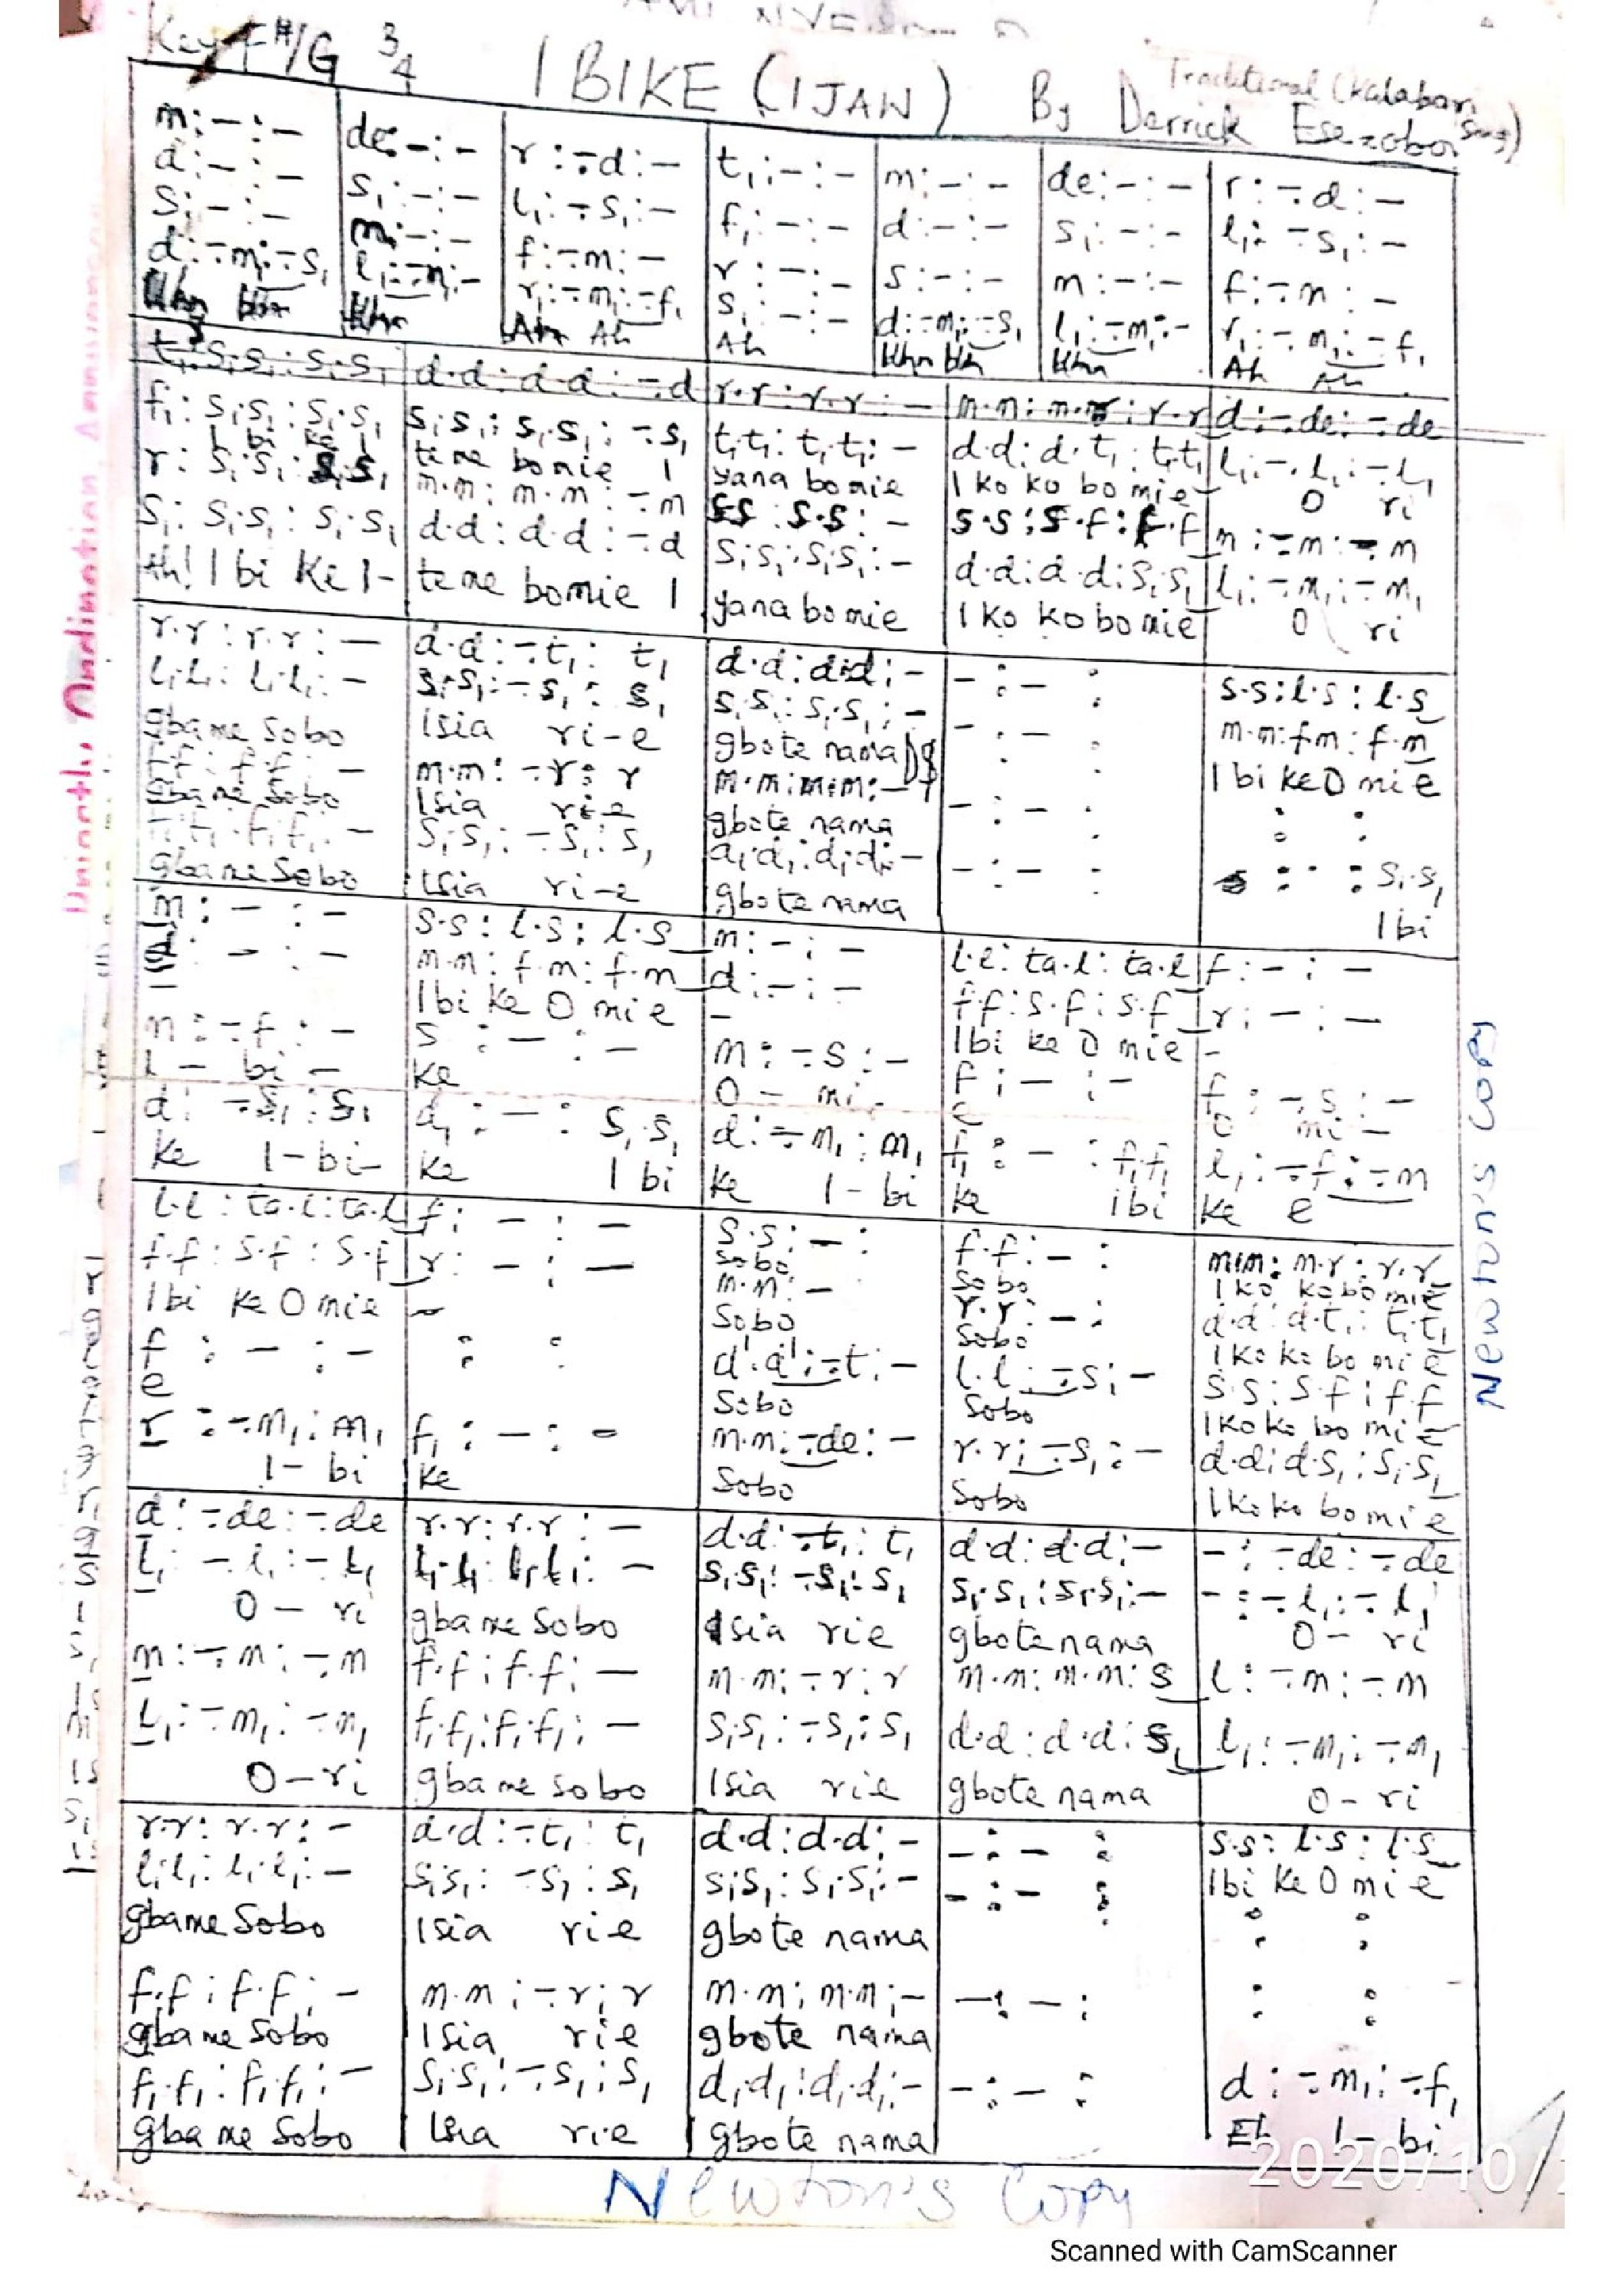 Key F#/G 3/4 I BIKE (IJAW) By Derrick Esezobor
Traditional (Kalabari Song)
m:-:- de:-:- r:-.d:- t₁:-:- m:-:- de:-:- r:-.d:-
d:-:- s₁:-:- l₁:-.s₁:- f₁:-:- d:-:- s₁:-:- l₁:-.s₁:-
s:-:- m:-:- f:-.m:- r:-:- s:-:- m:-:- f:-.m:-
d:-.m₁:-.s₁ l₁:-.m₁:- r₁:-.m₁:-.f₁ s₁:-:- d:-.m₁:-.s₁ l₁:-.m₁:- r₁:-.m₁:-.f₁
Ah Ah Ah Ah
t₁:s₁.s₁:s₁.s₁ d.d:d.d:-.d r.r:r.r:- m.m:m.r:r.r d:-.de:-.de
f₁:s₁.s₁:s₁.s₁ s₁.s₁:s₁.s₁:-.s₁ t₁.t₁:t₁.t₁:- d.d:d.t₁:t₁.t₁ l₁:-.l₁:-.l₁
I bi ke I te me bo mie I yana bo mie I ko ko bo mie O ri
r:s₁.s₁:s₁.s₁ m.m:m.m:-.m s.s:s.s:- s.s:s.f:f.f m:-.m:-.m
s₁:s₁.s₁:s₁.s₁ d.d:d.d:-.d s₁.s₁:s₁.s₁:- d.d:d.d:s₁.s₁ l₁:-.m₁:-.m₁
Ah! I bi Ke I- te me bomie I yana bo mie I ko ko bo mie O ri
r.r:r.r:- d.d:-.t₁:t₁ d.d:d.d:- -:-: s.s:l.s:l.s
l₁.l₁:l₁.l₁:- s₁.s₁:-.s₁:s₁ s₁.s₁:s₁.s₁:- -:-: m.m:f.m:f.m
gba me Sobo Isia ri-e gbote nama I bi ke O mi e
f.f:f.f:- m.m:-.r:r m.m:m.m:- -:-: : :
gbame Sobo Isia rie gbote nama
f₁.f₁:f₁.f₁:- s₁.s₁:-.s₁:s₁ d₁.d₁:d₁.d₁:- -:-: : :s₁.s₁
gba me Sobo Isia ri-e gbote nama I bi
m:-:- s.s:l.s:l.s m:-:- l.l:ta.l:ta.l f:-:-
d:-:- m.m:f.m:f.m d:-:- f.f:s.f:s.f r:-:-
- I bi ke O mi e - I bi ke O mie -
m:-.f:- s:-:- m:-.s:- f:-:- f:-.s:-
I - bi - ke O - mi - e O mi -
d:-.s₁:s₁ d₁:-:s₁.s₁ d:-.m₁:m₁ f₁:-:f₁.f₁ l₁:-.f:-.m
Ke I-bi- Ke I bi Ke I-bi ke I bi ke e
l.l:ta.l:ta.l f:-:- s.s:-: f.f:-: m.m:m.r:r.r
Sobo Sobo I ko kobo mie
f.f:s.f:s.f r:-:- m.m:- r.r:-: d.d:d.t₁:t₁.t₁
I bi ke O mie - Sobo Sobo I ko ko bo mi e
f:-:- : : d'.d':-.t:- l.l:-.s:- s.s:s.f:f.f
e Sobo Sobo I ko ko bo mi e
r:-.m₁:m₁ f₁:-:- m.m:-.de:- r.r:-.s₁:- d.d:d.s₁:s₁.s₁
I-bi ke Sobo Sobo I ko ko bo mi e
d:-.de:-.de r.r:r.r:- d.d:-.t₁:t₁ d.d:d.d:- -:-.de:-.de
l₁:-.l₁:-.l₁ l₁.l₁:l₁.l₁:- s₁.s₁:-.s₁:s₁ s₁.s₁:s₁.s₁:- -:-.l₁:-.l₁
O - ri gba me Sobo Isia rie gbote nama O - ri
m:-.m:-.m f.f:f.f:- m.m:-.r:r m.m:m.m:s l:-.m:-.m
l₁:-.m₁:-.m₁ f₁.f₁:f₁.f₁:- s₁.s₁:-.s₁:s₁ d.d:d.d:s₁ l₁:-.m₁:-.m₁
O-ri gba me Sobo Isia rie gbote nama O-ri
r.r:r.r:- d.d:-.t₁:t₁ d.d:d.d:- -:-: s.s:l.s:l.s
l₁.l₁:l₁.l₁:- s₁.s₁:-.s₁:s₁ s₁.s₁:s₁.s₁:- -:-: I bi Ke O mi e
gbame Sobo Isia rie gbote nama : :
f.f:f.f:- m.m:-.r:r m.m:m.m:- -:-: : :
gba me Sobo Isia rie gbote nama
f₁.f₁:f₁.f₁:- s₁.s₁:-.s₁:s₁ d₁.d₁:d₁.d₁:- -:-: d:-.m₁:-.f₁
gba me Sobo Isia rie gbote nama Eh I-bi
Newton's Copy
Newton's Copy
2020/10/
Scanned with CamScanner